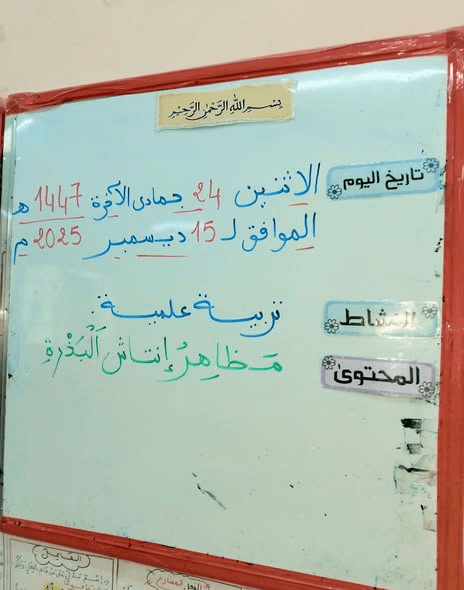 بسم الله الرحمن الرحيم
تاريخ اليوم الاثنين 24 جمادى الآخرة 1447 هـ
الموافق لـ 15 ديسمبر 2025 م
النشاط تربية علمية
المحتوى مَظاهِرُ إنتاش الْبَذْرةِ
الفعل المضارع